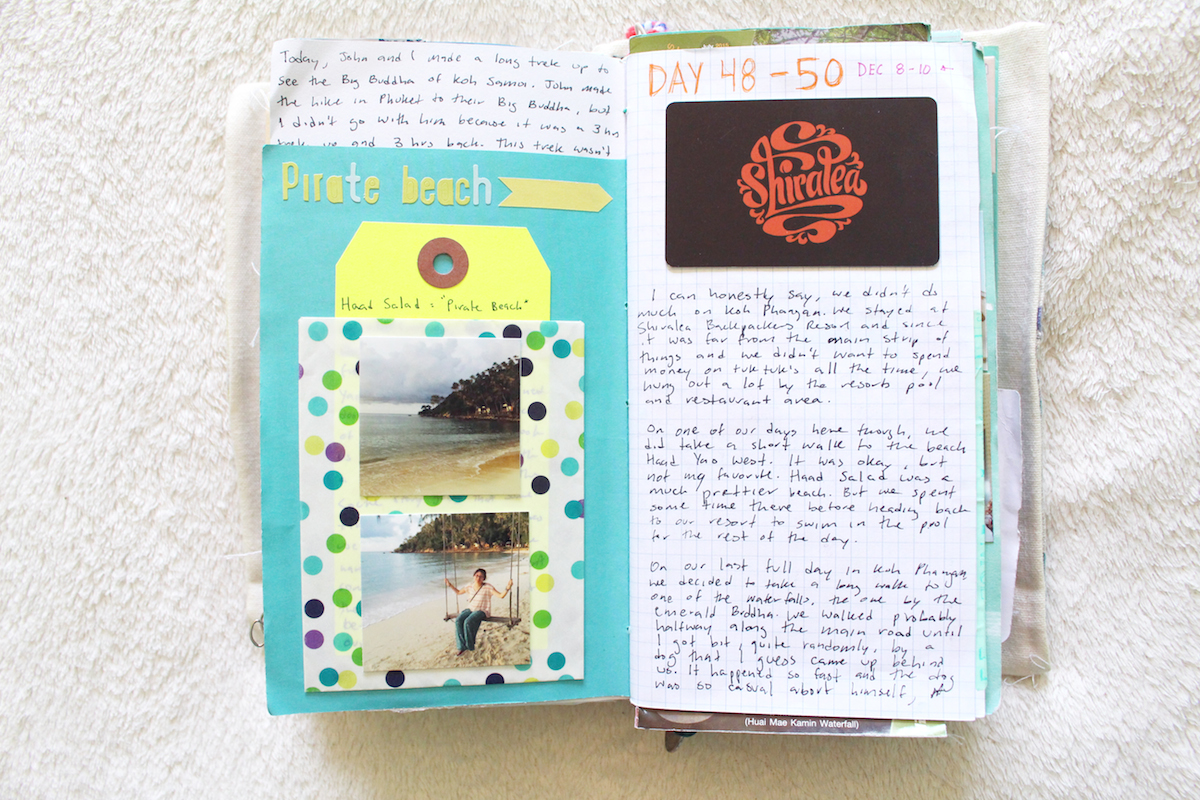 Today, John and I made a long trek up to
see the Big Buddha of Koh Samui. John made
the hike in Phuket to their Big Buddha, but
I didn't go with him because it was a 3 hr
trek up and 3 hrs back. This trek wasn't
Pirate beach
Haad Salad = "Pirate Beach"
DAY 48-50 DEC 8-10
Shiralea
I can honestly say, we didn't do
much on Koh Phangan. We stayed at
Shiralea Backpackers Resort and since
it was far from the main strip of
things and we didn't want to spend
money on tuktuk's all the time, we
hung out a lot by the resorts pool
and restaurant area.
On one of our days here though, we
did take a short walk to the beach
Haad Yao West. It was okay, but
not my favorite. Haad Salad was a
much prettier beach. But we spent
some time there before heading back
to our resort to swim in the pool
for the rest of the day.
On our last full day in Koh Phangan
we decided to take a long walk to
one of the waterfalls, the one by the
Emerald Buddha. We walked probably
halfway along the main road until
I got bit, quite randomly, by a
dog that I guess came up behind
us. It happened so fast and the dog
was so casual about himself,
(Huai Mae Kamin Waterfall)